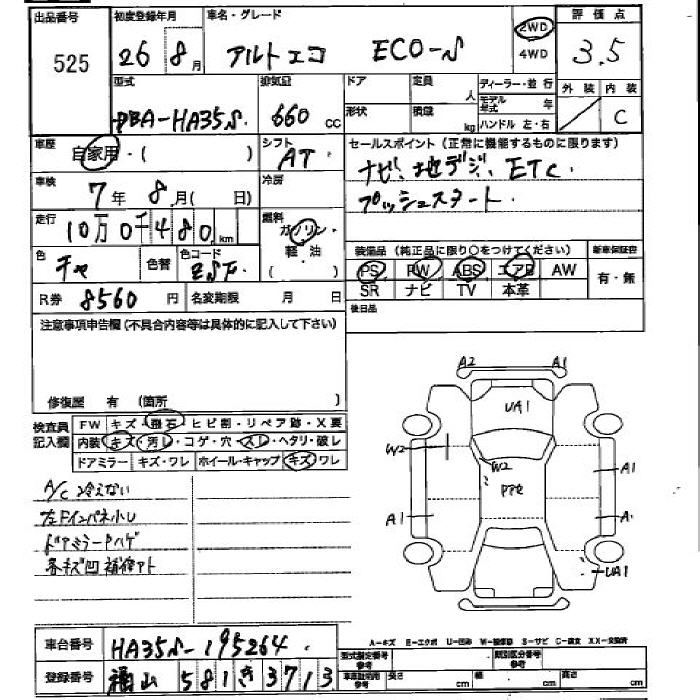 出品番号
525
初度登録年月
26 8月
車名・グレード
アルトエコ ECO-S
2WD
4WD
評価点
3.5
型式
DBA-HA35S
排気量
660 cc
ドア
定員 人
形状
積載 kg
ディーラー・並行
モデル年式 年
ハンドル 左・右
外装 内装
C
車歴
自家用・( )
シフト
AT
セールスポイント(正常に機能するものに限ります)
ナビ、地デジ、ETC
プッシュスタート
車検
7年 8月( 日)
冷房
走行
10万0千480km
燃料
ガソリン・
軽・油
( )
色
チャ
色替
色コード
装備品(純正品に限り○をつけてください)
PS PW ABS エアB AW
SR ナビ TV 本革
新車保証書
有・無
R券
8560円
名変期限 月 日
後日品
注意事項申告欄(不具合内容等は具体的に記入して下さい)
修復歴 有(箇所 )
検査員
記入欄
FW キズ・飛石・ヒビ割・リペア跡・X要
内装 キズ・汚レ・コゲ・穴・スレ・ヘタリ・破レ
ドアミラー キズ・ワレ ホイール・キャップ キズ・ワレ
A/C冷えない
左Fインパネ小レ
ドアミラーPハゲ
各キズ凹補修アト
A2 A1
UA1
W2
W2
A1
A1
UA1
A-キズ E-エクボ U-凹 W-補修跡 S-サビ C-腐食 XX-交換済
車台番号
HA35S-195264
登録番号
福山 581 き 3713
型式指定番号
参考
類別区分番号
参考
車庫証明用
参考
長さ cm
幅 cm
高さ cm